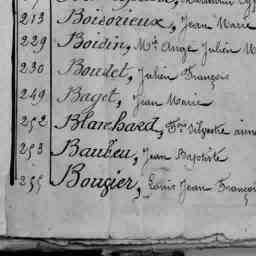 213 Boisorieux, Jean Marie
229 Boidin, Mt Ange Julien
230 Boudet, Julien François
249 Baget, Jean Marie
252 Blanchard, Fois Silvestre aimé
253 Baubeu, Jean Baptiste
255 Bougier, Louis Jean François